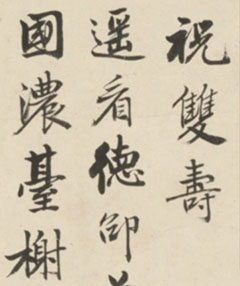 祝雙壽
遥看德邵
國濃臺榭